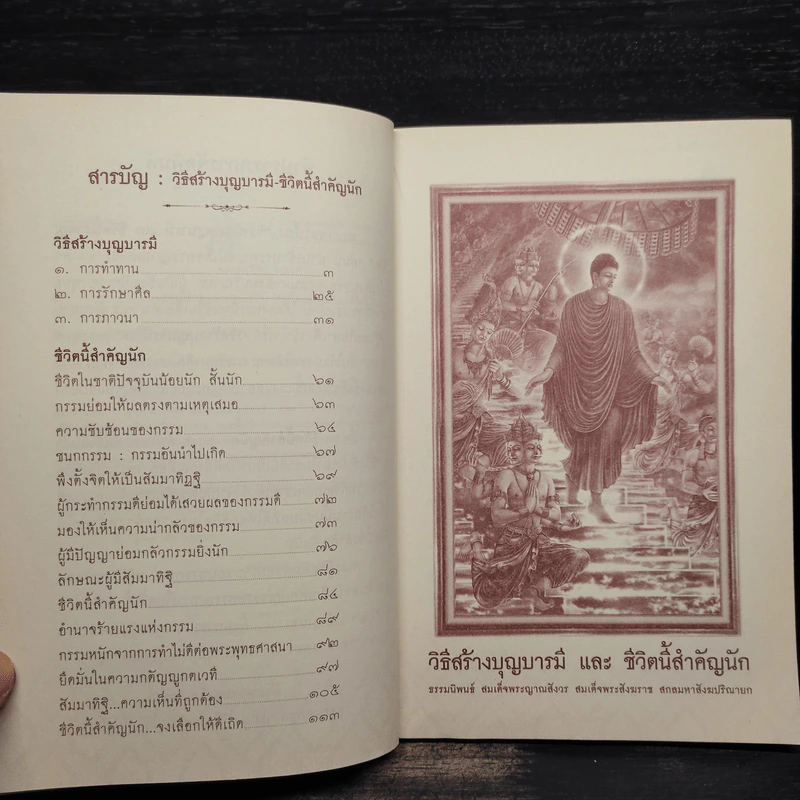 สารบัญ : วิธีสร้างบุญบารมี-ชีวิตนี้สำคัญนัก
วิธีสร้างบุญบารมี
๑. การทำทาน ๓
๒. การรักษาศีล ๒๕
๓. การภาวนา ๓๑
ชีวิตนี้สำคัญนัก
ชีวิตในชาติปัจจุบันน้อยนัก สั้นนัก ๖๑
กรรมย่อมให้ผลตรงตามเหตุเสมอ ๖๓
ความซับซ้อนของกรรม ๖๔
ชนกกรรม : กรรมอันนำไปเกิด ๖๗
พึงตั้งจิตให้เป็นสัมมาทิฏฐิ ๖๙
ผู้กระทำกรรมดีย่อมได้เสวยผลของกรรมดี ๗๒
มองให้เห็นความน่ากลัวของกรรม ๗๓
ผู้มีปัญญาย่อมกลัวกรรมยิ่งนัก ๗๖
ลักษณะผู้มีสัมมาทิฐิ ๘๑
ชีวิตนี้สำคัญนัก ๘๔
อำนาจร้ายแรงแห่งกรรม ๘๙
กรรมหนักจากการทำไม่ดีต่อพระพุทธศาสนา ๙๒
ยึดมั่นในความกตัญญูกตเวที ๙๗
สัมมาทิฐิ...ความเห็นที่ถูกต้อง ๑๐๕
ชีวิตนี้สำคัญนัก...จงเลือกให้ดีเถิด ๑๑๓
วิธีสร้างบุญบารมี และ ชีวิตนี้สำคัญนัก
ธรรมนิพนธ์ สมเด็จพระญาณสังวร สมเด็จพระสังฆราช สกลมหาสังฆปริณายก